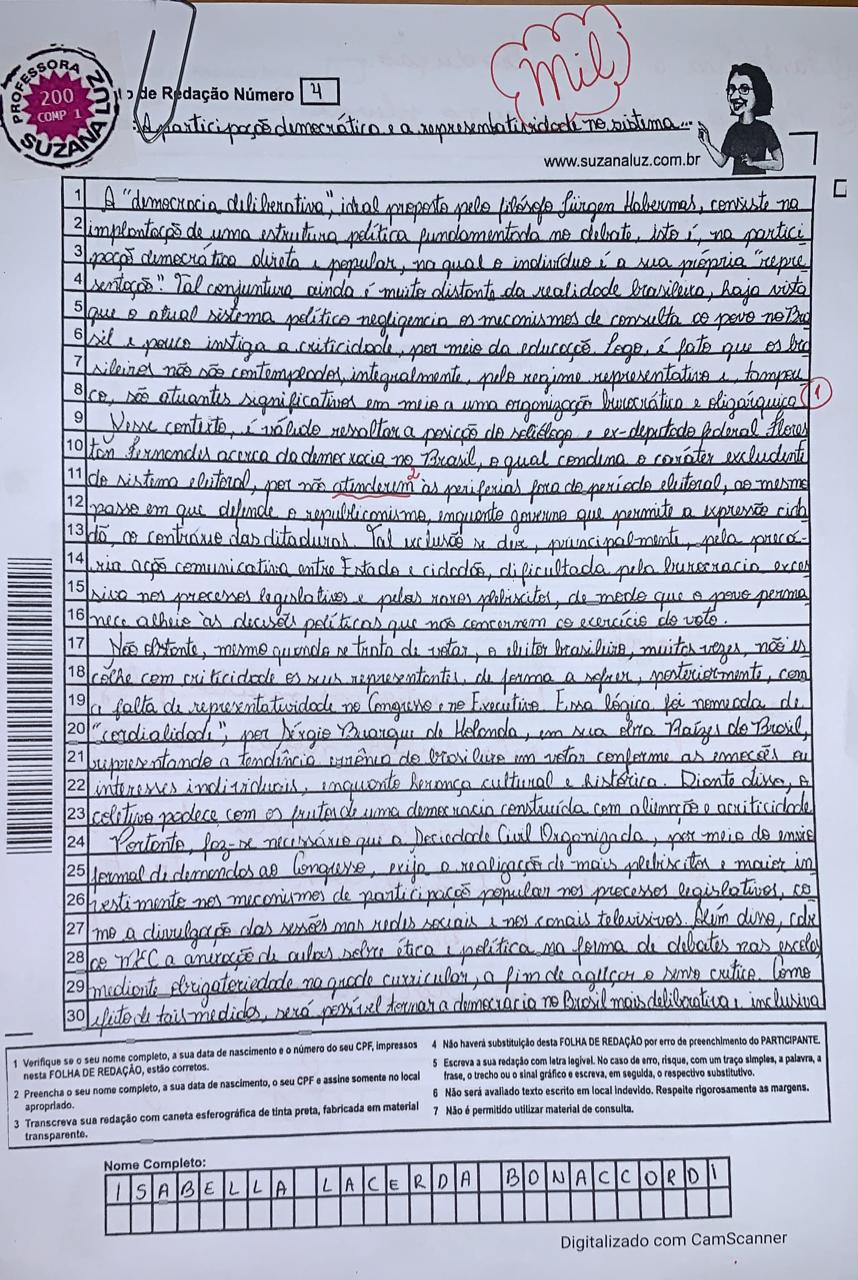 Mil
PROFESSORA
200
COMP 1
SUZANA LUZ
to de Redação Número 4
A participação democrática e a representatividade no sistema...
www.suzanaluz.com.br
1 A "democracia deliberativa", ideal proposto pelo filósofo Jürgen Habermas, consiste na
2 implantação de uma estrutura política fundamentada no debate, isto é, na partici
3 pação democrática direta e popular, na qual o indivíduo é a sua própria "repre
4 sentação". Tal conjuntura ainda é muito distante da realidade brasileira, haja vista
5 que o atual sistema político negligencia os mecanismos de consulta ao povo no Bra
6 sil e pouco instiga a criticidade, por meio da educação. Logo, é fato que os bra
7 sileiros não são contemplados, integralmente, pelo regime representativo e, tampou
8 co, são atuantes significativos em meio a uma organização burocrática e oligárquica. 1
9 Nesse contexto, é válido ressaltar a posição do sociólogo e ex-deputado federal Flores
10 tan Fernandes acerca da democracia no Brasil, o qual condena o caráter excludente
11 do sistema eleitoral, por não atenderem 2 às periferias fora do período eleitoral, ao mesmo
12 passo em que defende o republicanismo, enquanto governo que permite a expressão cida
13 dã, ao contrário das ditaduras. Tal exclusão se deve, principalmente, pela precá-
14 ria ação comunicativa entre Estado e cidadão, dificultada pela burocracia exces
15 siva nos processos legislativos e pelos raros plebiscitos, de modo que o povo perma
16 nece alheio às decisões políticas que não concernem ao exercício do voto.
17 Não obstante, mesmo quando se trata de votar, o eleitor brasileiro, muitas vezes, não es
18 colhe com criticidade os seus representantes, de forma a sofrer, posteriormente, com
19 a falta de representatividade no Congresso e no Executivo. Essa lógica foi nomeada de
20 "cordialidade", por Sérgio Buarque de Holanda, em sua obra Raízes do Brasil,
21 representando a tendência errônea do brasileiro em votar conforme as emoções ou
22 interesses individuais, enquanto herança cultural e histórica. Diante disso, o
23 coletivo padece com os frutos de uma democracia construída com alienação e acriticidade
24 Portanto, faz-se necessário que a Sociedade Civil Organizada, por meio do envio
25 formal de demandas ao Congresso, exija a realização de mais plebiscitos e maior in
26 vestimento nos mecanismos de participação popular nos processos legislativos, co
27 mo a divulgação das sessões nas redes sociais e nos canais televisivos. Além disso, cabe
28 ao MEC a anexação de aulas sobre ética e política na forma de debates nas escolas
29 mediante obrigatoriedade na grade curricular, a fim de aguçar o senso crítico. Como
30 efeito de tais medidas, será possível tornar a democracia no Brasil mais deliberativa e inclusiva
1 Verifique se o seu nome completo, a sua data de nascimento e o número do seu CPF, impressos
nesta FOLHA DE REDAÇÃO, estão corretos.
2 Preencha o seu nome completo, a sua data de nascimento, o seu CPF e assine somente no local
apropriado.
3 Transcreva sua redação com caneta esferográfica de tinta preta, fabricada em material
transparente.
4 Não haverá substituição desta FOLHA DE REDAÇÃO por erro de preenchimento do PARTICIPANTE.
5 Escreva a sua redação com letra legível. No caso de erro, risque, com um traço simples, a palavra, a
frase, o trecho ou o sinal gráfico e escreva, em seguida, o respectivo substitutivo.
6 Não será avaliado texto escrito em local indevido. Respeite rigorosamente as margens.
7 Não é permitido utilizar material de consulta.
Nome Completo:
ISABELLA LACERDA BONACCORDI
Digitalizado com CamScanner